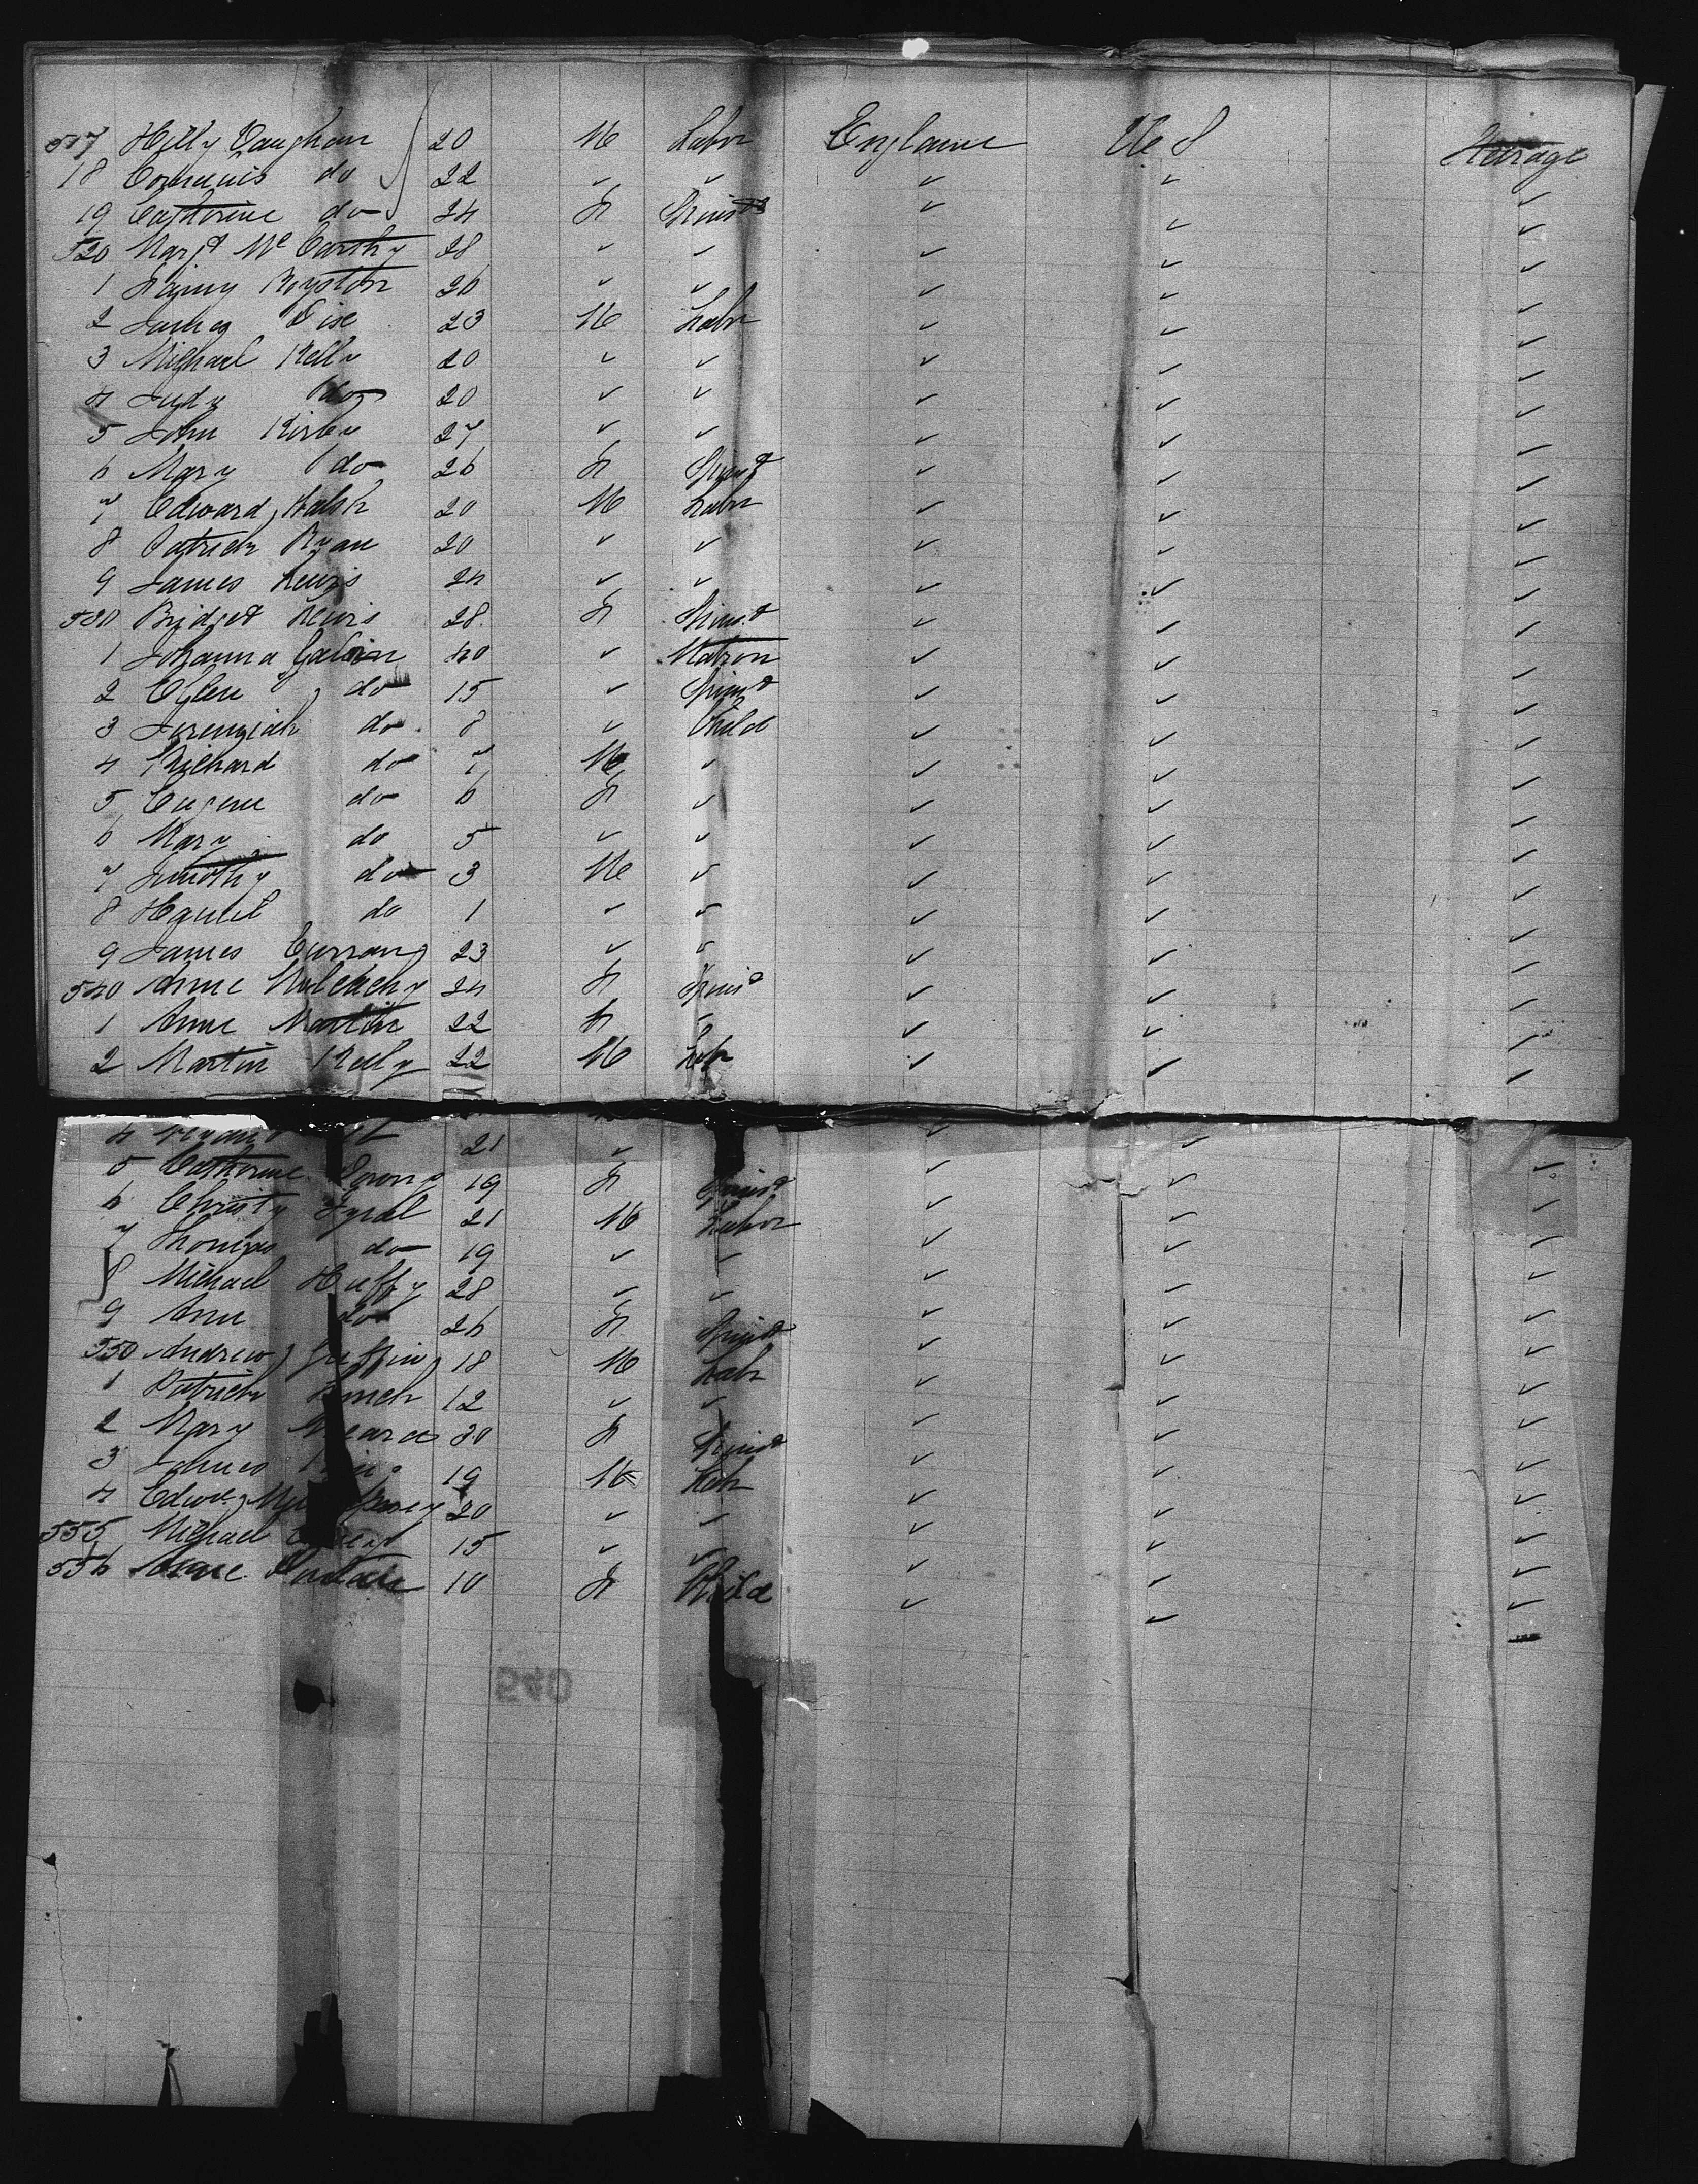 517 Hilly Vaughan 20 M Labr England U S Steerage
18 Cornelius do 22 ✓ ✓ ✓ ✓ ✓
19 Catherine do 24 F Spinst ✓ ✓ ✓
520 Margt McCarthy 28 ✓ ✓ ✓ ✓ ✓
1 Royston 26 ✓ ✓ ✓ ✓ ✓
2 James 23 M Labr ✓ ✓ ✓
3 Michael Kelly 20 ✓ ✓ ✓ ✓ ✓
4 Judy do 20 ✓ ✓ ✓ ✓ ✓
5 John Kirby 27 ✓ ✓ ✓ ✓ ✓
6 Mary do 26 F Spinst ✓ ✓ ✓
7 Edward Walsh 20 M Labr ✓ ✓ ✓
8 Patrick Ryan 20 ✓ ✓ ✓ ✓ ✓
9 James Lewis 24 ✓ ✓ ✓ ✓ ✓
530 Bridget Lewis 28 F Spinst ✓ ✓ ✓
1 Johanna Galvin 40 ✓ Matron ✓ ✓ ✓
2 Ellen do 15 ✓ Spinst ✓ ✓ ✓
3 Jeremiah do 8 ✓ Child ✓ ✓ ✓
4 Richard do 7 M ✓ ✓ ✓ ✓
5 Eugene do 6 F ✓ ✓ ✓ ✓
6 Mary do 5 ✓ ✓ ✓ ✓ ✓
7 Timothy do 3 M ✓ ✓ ✓ ✓
8 do 1 ✓ ✓ ✓ ✓ ✓
9 James Curran 23 ✓ ✓ ✓ ✓ ✓
540 Anne Mulcahy 24 F Spinst ✓ ✓ ✓
1 Anne Martin 22 F ✓ ✓ ✓ ✓
2 Martin Kelly 22 M Labr ✓ ✓ ✓
4 21 ✓ ✓ ✓ ✓
5 Catherine 19 F Spinst ✓ ✓ ✓
6 Christy 21 M Labor ✓ ✓ ✓
7 Thomas do 19 ✓ ✓ ✓ ✓ ✓
8 Michael Huffy 28 ✓ ✓ ✓ ✓ ✓
9 Anne do 26 F Spinst ✓ ✓ ✓
550 Andrew Griffin 18 M Labr ✓ ✓ ✓
1 Patrick 12 ✓ ✓ ✓ ✓ ✓
2 Mary 30 F Spinst ✓ ✓ ✓
3 James 19 M Labr ✓ ✓ ✓
4 Edwd 20 ✓ ✓ ✓ ✓ ✓
555 Michael 15 ✓ ✓ ✓ ✓ ✓
556 Anne 10 F Child ✓ ✓ ✓
540